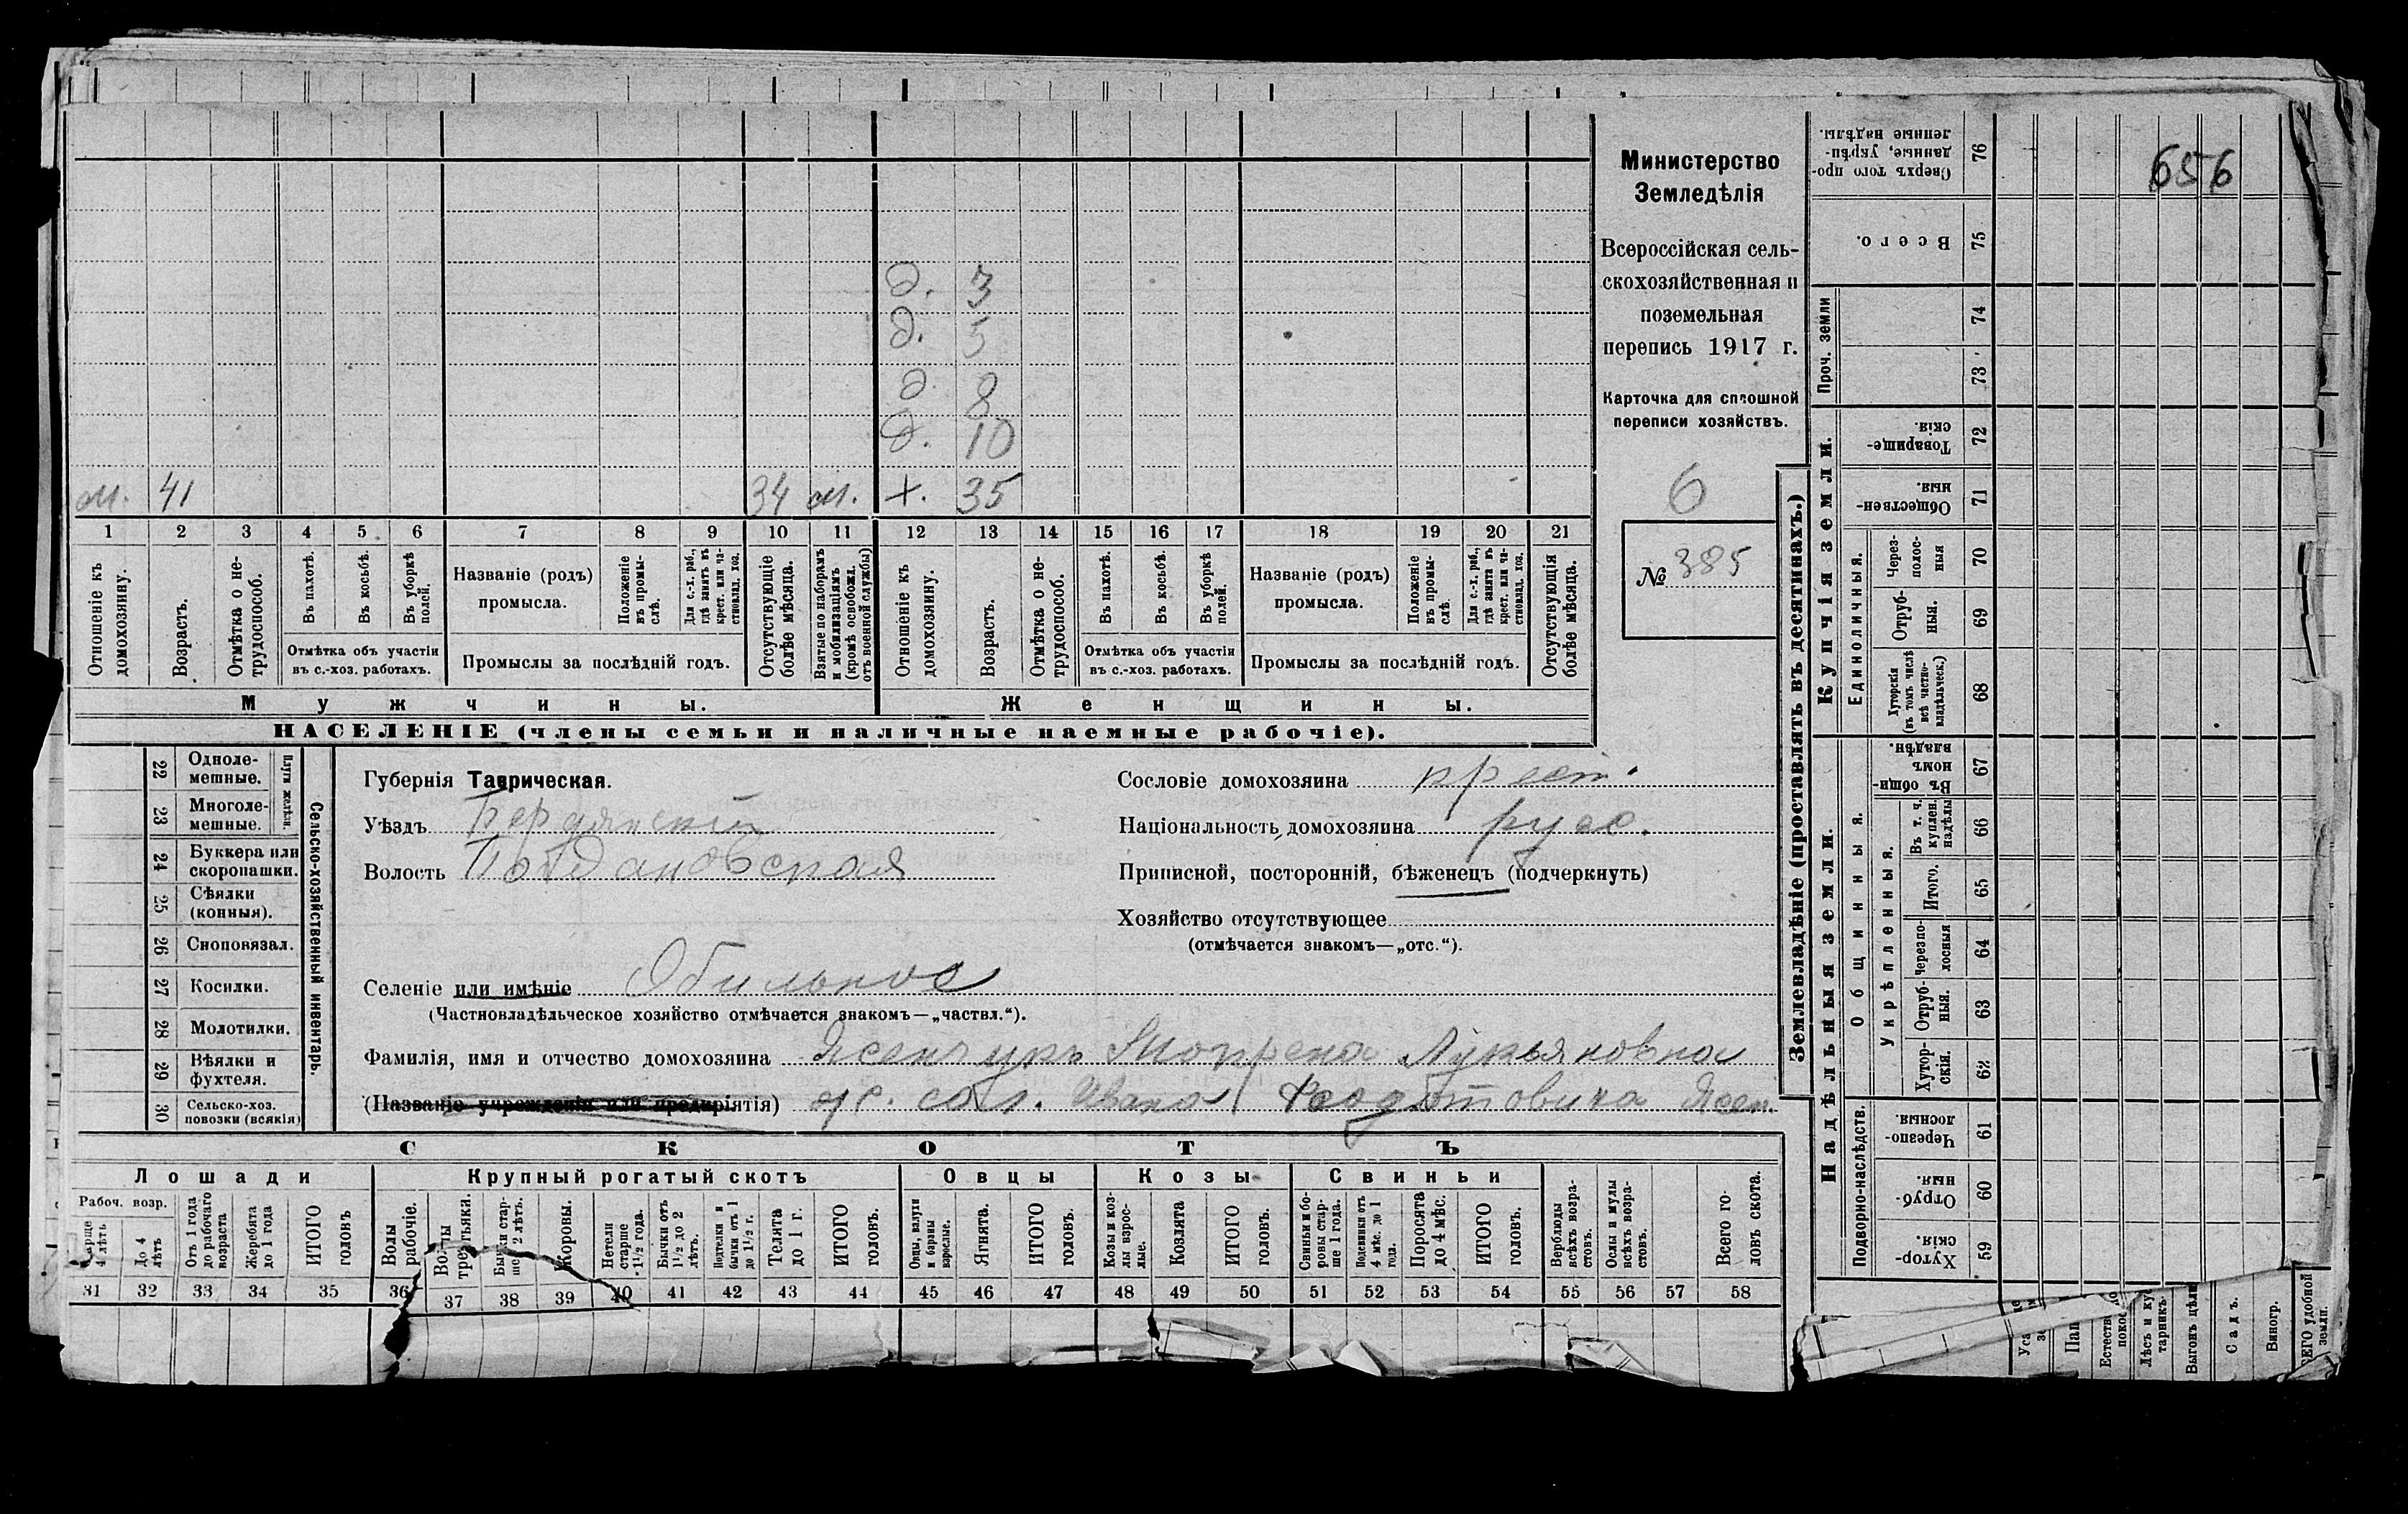 656
Министерство
Земледѣлія
Всероссійская сель-
скохозяйственная и
поземельная
перепись 1917 г.
Карточка для сплошной
переписи хозяйствъ.
6
№ 385
д. 3
д. 5
д. 8
д. 10
м. 41 34 м. х. 35
1 2 3 4 5 6 7 8 9 10 11 12 13 14 15 16 17 18 19 20 21
Отношеніе къ домохозяину.
Возрастъ.
Отмѣтка о не-трудоспособ.
Въ пахотѣ.
Въ косьбѣ.
Въ уборкѣ полей.
Отмѣтка объ участіи
въ с.-хоз. работахъ.
Названіе (родъ)
промысла.
Положеніе въ промы-слѣ.
Для с.-х. раб., гдѣ занятъ въ крест. или ча-стновлад. хоз.
Промыслы за послѣдній годъ.
Отсутствующіе болѣе мѣсяца.
Взятые по наборамъ и мобилизаціямъ (кромѣ освобожд. отъ военной службы)
Отношеніе къ домохозяину.
Возрастъ.
Отмѣтка о не-трудоспособ.
Въ пахотѣ.
Въ косьбѣ.
Въ уборкѣ полей.
Отмѣтка объ участіи
въ с.-хоз. работахъ.
Названіе (родъ)
промысла.
Положеніе въ промы-слѣ.
Для с.-х. раб., гдѣ занята въ крест. или ча-стновлад. хоз.
Промыслы за послѣдній годъ.
Отсутствующія болѣе мѣсяца.
Мужчины. Женщины.
НАСЕЛЕНІЕ (члены семьи и наличные наемные рабочіе).
22 Одноле-мешные.
23 Многоле-мешные.
Плуги желѣзн.
24 Буккера или скоропашки.
25 Сѣялки (конныя).
26 Сноповязал.
27 Косилки.
28 Молотилки.
29 Вѣялки и фухтеля.
30 Сельско-хоз. повозки (всякія)
Сельско-хозяйственный инвентарь.
Губернія Таврическая.
Уѣздъ Бердянскій
Волость Богдановская
Сословіе домохозяина крест.
Національность домохозяина русс.
Приписной, посторонній, бѣженецъ (подчеркнуть)
Хозяйство отсутствующее
(отмѣчается знакомъ—„отс.“).
Селеніе или имѣніе Обильное
(Частновладѣльческое хозяйство отмѣчается знакомъ—„частвл.“).
Фамилія, имя и отчество домохозяина Ясенчукъ Лукьяновна
(Названіе учрежденія или предпріятія) ж. сол. Ивана Феодотовича Ясен.
СКОТЪ
Лошади Крупный рогатый скотъ Овцы Козы Свиньи
Рабоч. возр.
Старше 4 лѣтъ
До 4 лѣтъ
Отъ 1 года до рабочаго возраста
Жеребята до 1 года
ИТОГО головъ
Волы рабочіе.
Волы третьяки.
Бычки стар-ше 2 лѣтъ.
Коровы.
Нетели старше 1½ года.
Бычки отъ 1½ до 2 лѣтъ.
Подтелки и бычки отъ 1 до 1½ г.
Телята до 1 г.
ИТОГО головъ.
Овцы, валухи и бараны взрослые.
Ягнята.
ИТОГО головъ.
Козы и коз-лы взрос-лые.
Козлята
ИТОГО головъ.
Свиньи и бо-ровы стар-ше 1 года.
Подсвинки отъ 4 мѣс. до 1 года.
Поросята до 4 мѣс.
ИТОГО головъ.
Верблюды всѣхъ возра-стовъ.
Ослы и мулы всѣхъ возра-стовъ.
Всего го-ловъ скота.
31 32 33 34 35 36 37 38 39 40 41 42 43 44 45 46 47 48 49 50 51 52 53 54 55 56 57 58
Землевладѣніе (проставлять въ десятинахъ.)
Сверхъ того про-данные, укрѣп-ленные надѣлы. 76
Всего. 75
Проч. земли
74
73
Купчія земли.
Товарище-скія. 72
Обществен-ныя. 71
Единоличныя.
Через-полос-ныя 70
Отруб-ныя. 69
Хуторскія (въ томъ числѣ всѣ частно-владѣльческ.) 68
Надѣльныя земли.
Общинныя.
Въ общи-номъ владѣн. 67
Укрѣпленныя.
Въ т. ч. куплен. надѣлы 66
Итого. 65
Черезпо-лосныя 64
Отруб-ныя. 63
Хутор-скія. 62
Подворно-наслѣдств.
Черезпо-лосныя. 61
Отруб-ныя. 60
Хутор-скія. 59
Выгонъ
Садъ.
Виногр.
удобной земли.